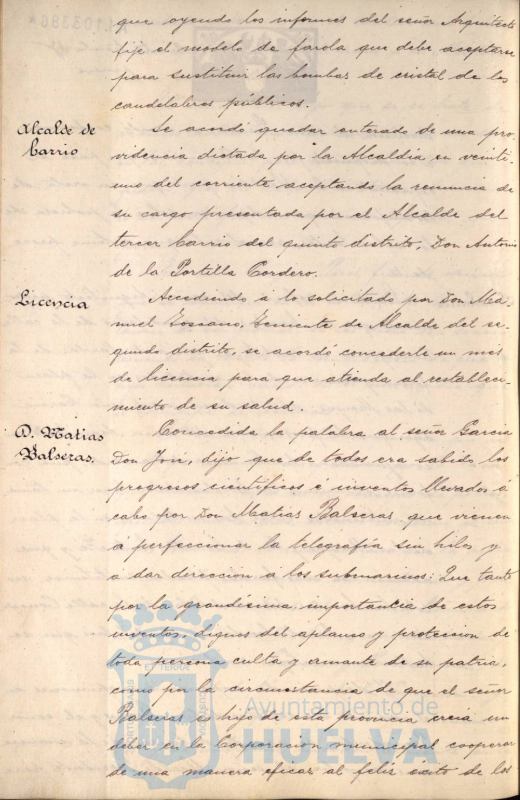 que oyendo los informes del señor Arquitecto
fije el modelo de farola que debe aceptarse
para sustituir las bombas de cristal de los
candelabros públicos.
Alcalde de
barrio
Se acordó quedar enterado de una pro-
videncia dictada por la Alcaldia en veinti-
uno del corriente aceptando la renuncia de
su cargo presentada por el Alcalde del
tercer barrio del quinto distrito, Don Antonio
de la Portilla Cordero.
Licencia
Accediendo á lo solicitado por Don Ma-
nuel Toscano, Teniente de Alcalde del se-
gundo distrito, se acordó concederle un mes
de licencia para que atienda al restableci-
miento de su salud.
D. Matias
Balseras.
Concedida la palabra al señor Garcia
Don José, dijo que de todos era sabido los
progresos cientificos é inventos llevados á
cabo por Don Matias Balseras que vienen
á perfeccionar la telegrafía sin hilos y
a dar direccion a los submarinos: Que tanto
por la grandisima importancia de estos
inventos, dignos del aplauso y proteccion de
toda persona culta y amante de su patria,
como por la circunstancia de que el señor
Balseras es hijo de esta provincia creia un
deber en la Corporación municipal cooperar
de una manera eficaz al feliz éxito de los
Ayuntamiento de
HUELVA